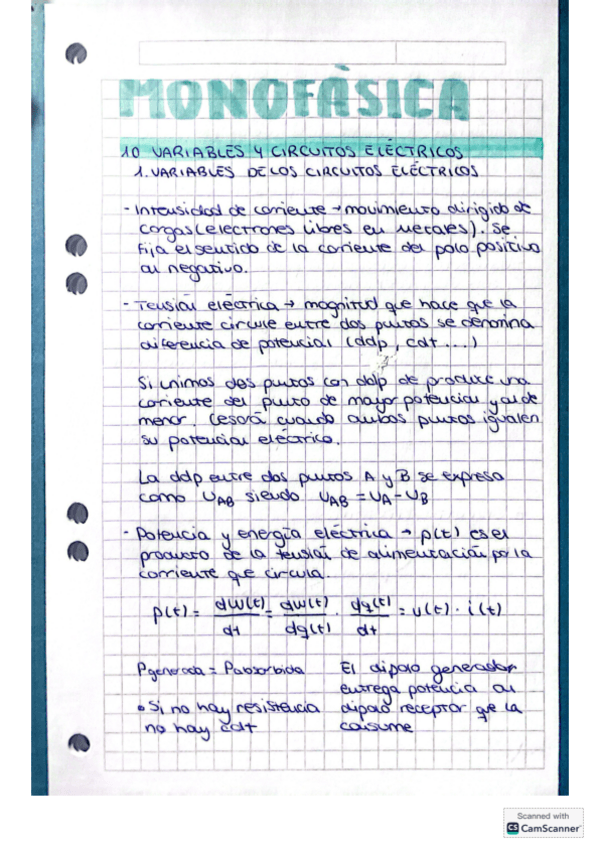 MONOFÀSICA
10 VARIABLES Y CIRCUITOS ELÉCTRICOS
1. VARIABLES DE LOS CIRCUITOS ELÉCTRICOS
- Intensidad de corriente → movimiento dirigido de
cargas (electrones libres en metales). Se
fija el sentido de la corriente del polo positivo
al negativo.
- Tensión eléctrica → magnitud que hace que la
corriente circule entre dos puntos se denomina
diferencia de potencial (ddp, cdt...)
Si unimos dos puntos con ddp de produce una
corriente del punto de mayor potencial y al de
menor. Cesará cuando ambos puntos igualen
su potencial eléctrico.
La ddp entre dos puntos A y B se expresa
como U_AB siendo U_AB = U_A - U_B
- Potencia y energía eléctrica → p(t) es el
producto de la tensión de alimentación por la
corriente que circula.
p(t) = dw(t)/dt = dw(t)/dq(t) · dq(t)/dt = u(t) · i(t)
Pgenerada = Pabsorbida
• Si no hay resistencia
no hay cdt
El dipolo generador
entrega potencia al
dipolo receptor que la
consume
Scanned with
CS CamScanner